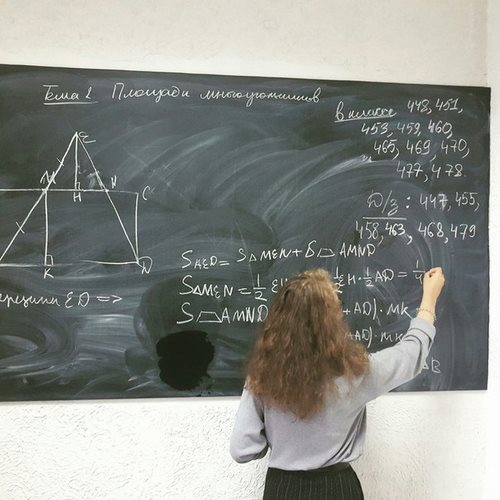 Тема 2 Площади многоугольников
в классе 448, 451,
453, 459, 460,
465, 469, 470,
477, 478.
D/з : 447, 455,
458, 463, 468, 479
E
M H N C
K D
S AED = S△MEN + S⏢AMND
S△MEN = 1/2 EH · 1/2 AD = 1/4
S⏢AMND + AD) · MK
AD) · MK
ED =>